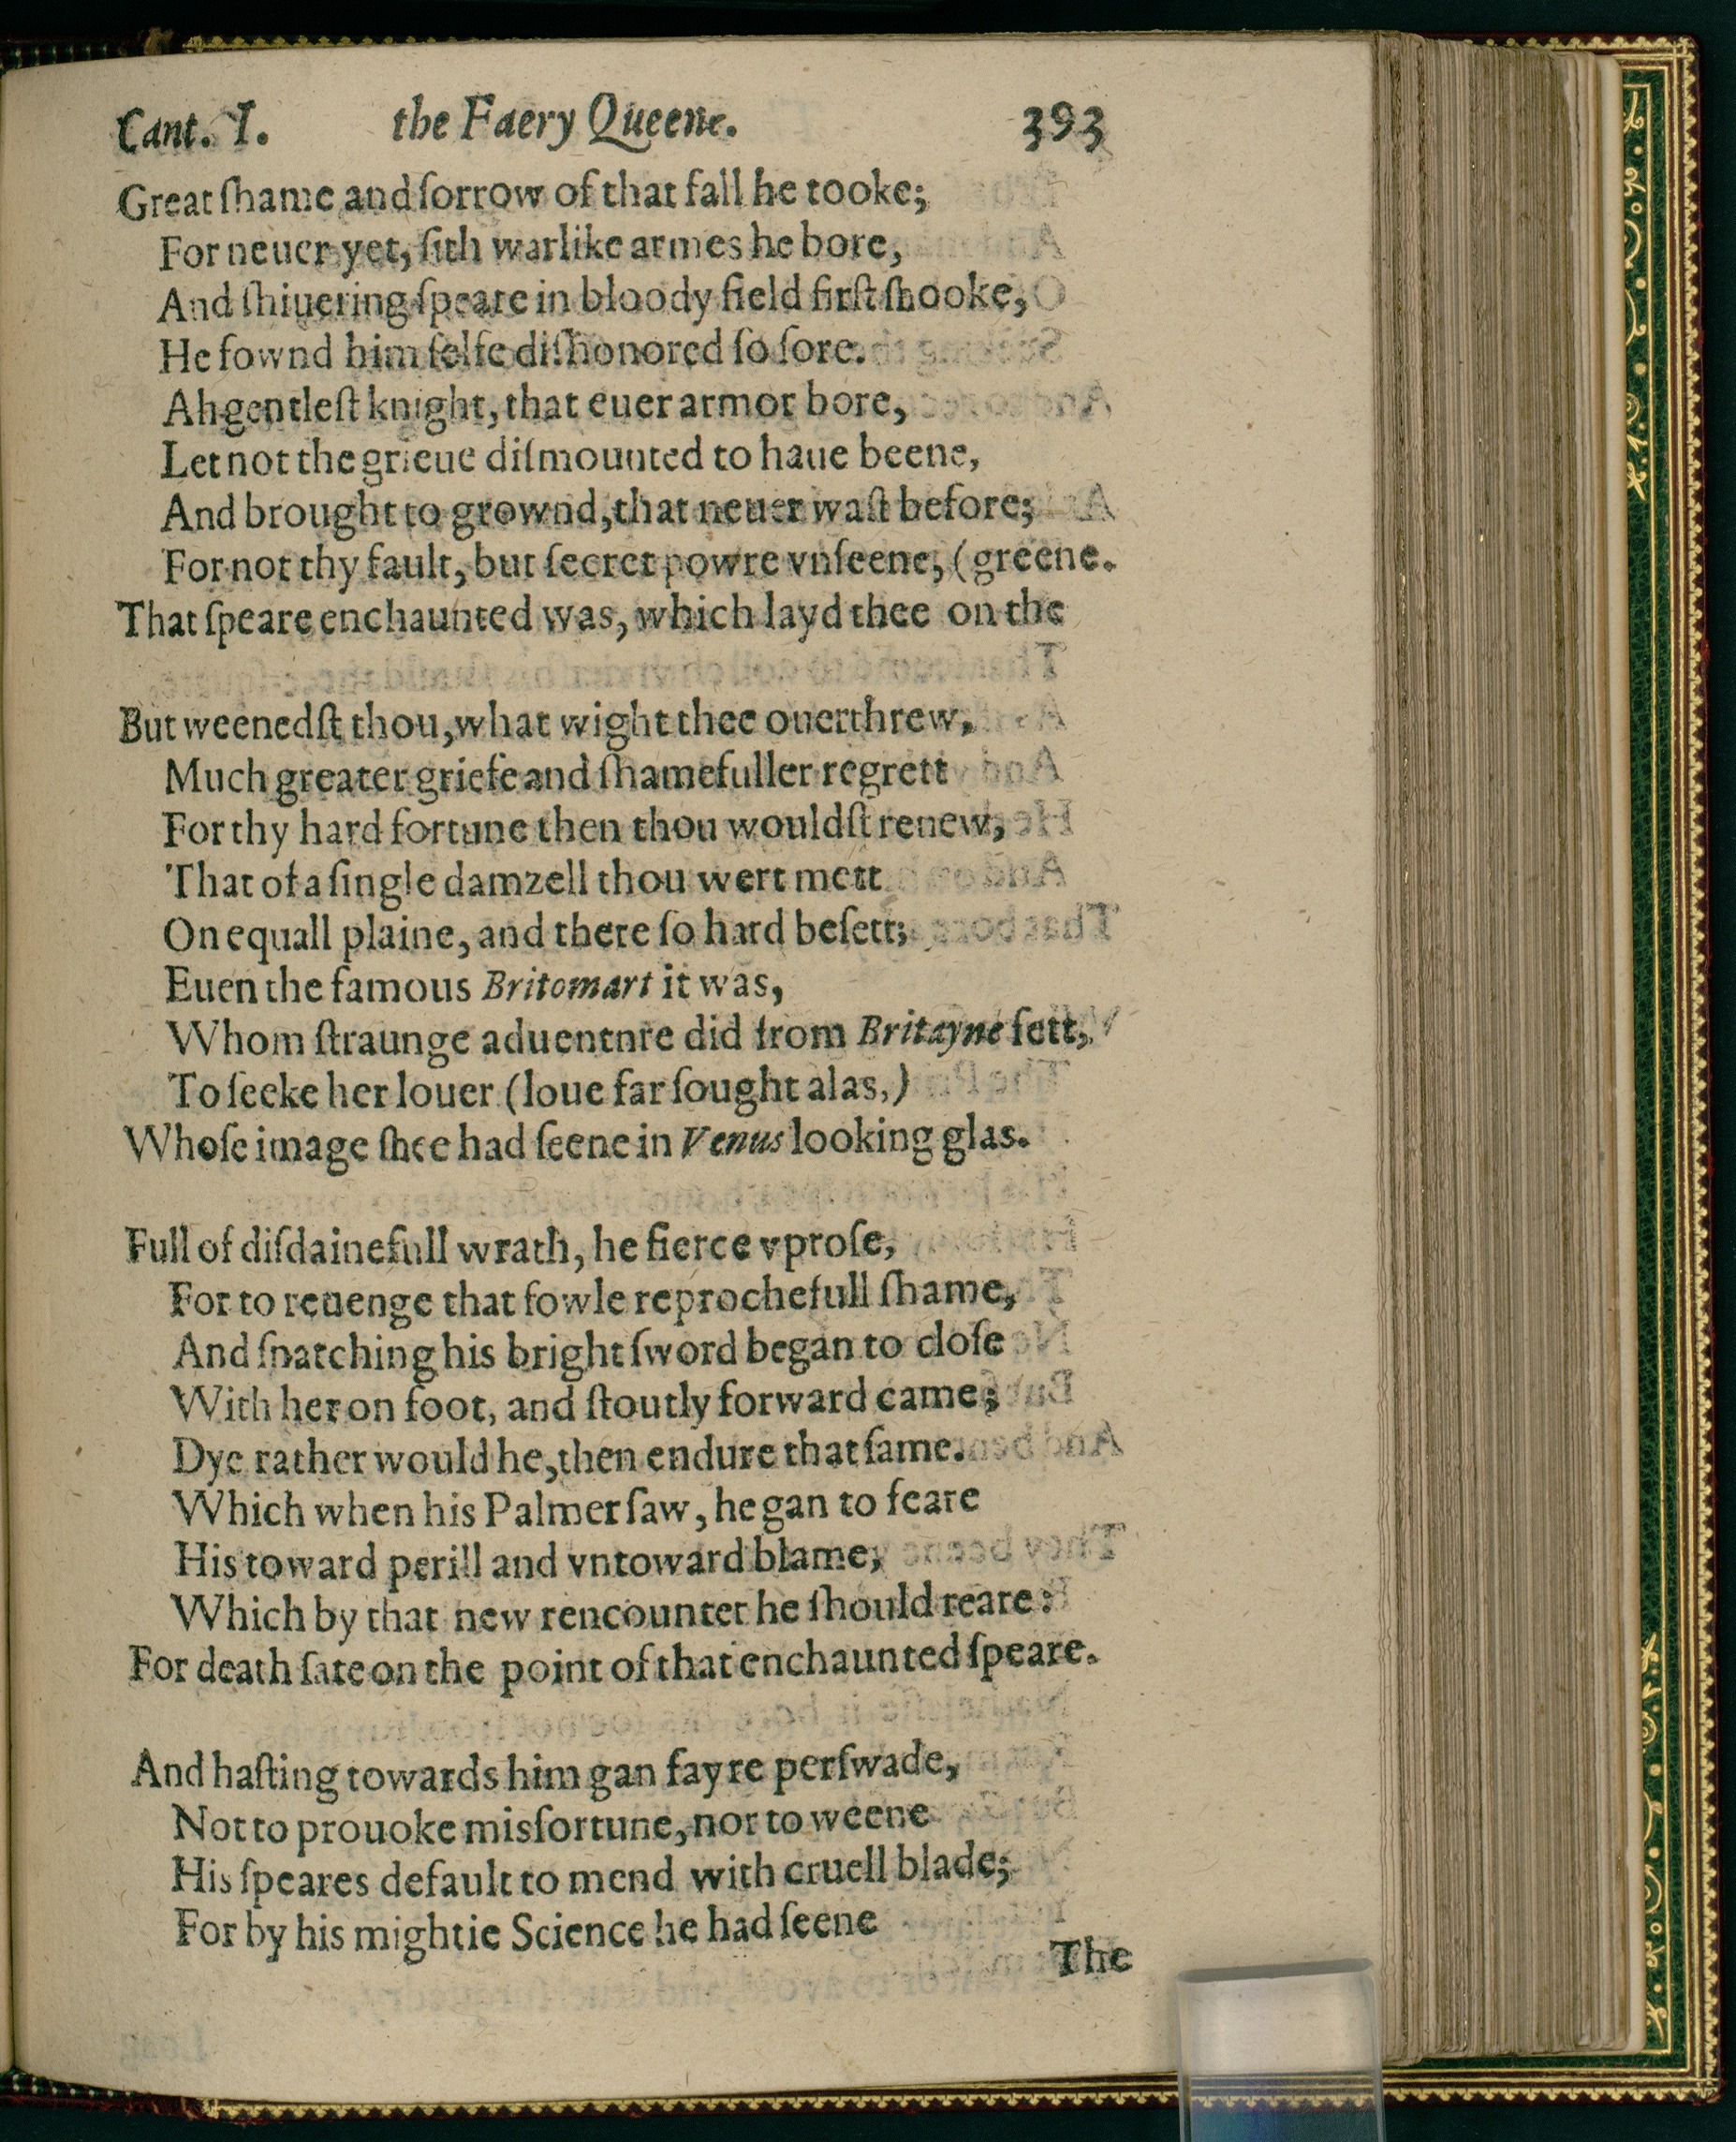 Cant. I. the Faery Queene. 393
Great ſhame and ſorrow of that fall he tooke;
For neuer yet, ſith warlike armes he bore,
And ſhiuering ſpeare in bloody field firſt ſhooke,
He fownd him ſelfe diſhonored ſo ſore.
Ah gentleſt knight, that euer armor bore,
Let not the grieue diſmounted to haue beene,
And brought to grownd, that neuer waſt before;
For not thy fault, but ſecret powre vnſeene, (greene.
That ſpeare enchaunted was, which layd thee on the
But weenedſt thou, what wight thee ouerthrew,
Much greater griefe and ſhamefuller regrett
For thy hard fortune then thou wouldſt renew,
That of a ſingle damzell thou wert mett
On equall plaine, and there ſo hard beſett;
Euen the famous Britomart it was,
Whom ſtraunge aduentnre did from Britayne fett,
To ſeeke her louer (loue far ſought alas,)
Whoſe image ſhee had ſeene in Venus looking glas.
Full of diſdainefull wrath, he fierce vproſe,
For to reuenge that fowle reprochefull ſhame,
And ſnatching his bright ſword began to cloſe
With her on foot, and ſtoutly forward came;
Dye rather would he, then endure that ſame.
Which when his Palmer ſaw, he gan to feare
His toward perill and vntoward blame,
Which by that new rencounter he ſhould reare:
For death ſate on the point of that enchaunted ſpeare.
And haſting towards him gan fayre perſwade,
Not to prouoke misfortune, nor to weene
His ſpeares default to mend with cruell blade;
For by his mightie Science he had ſeene
The